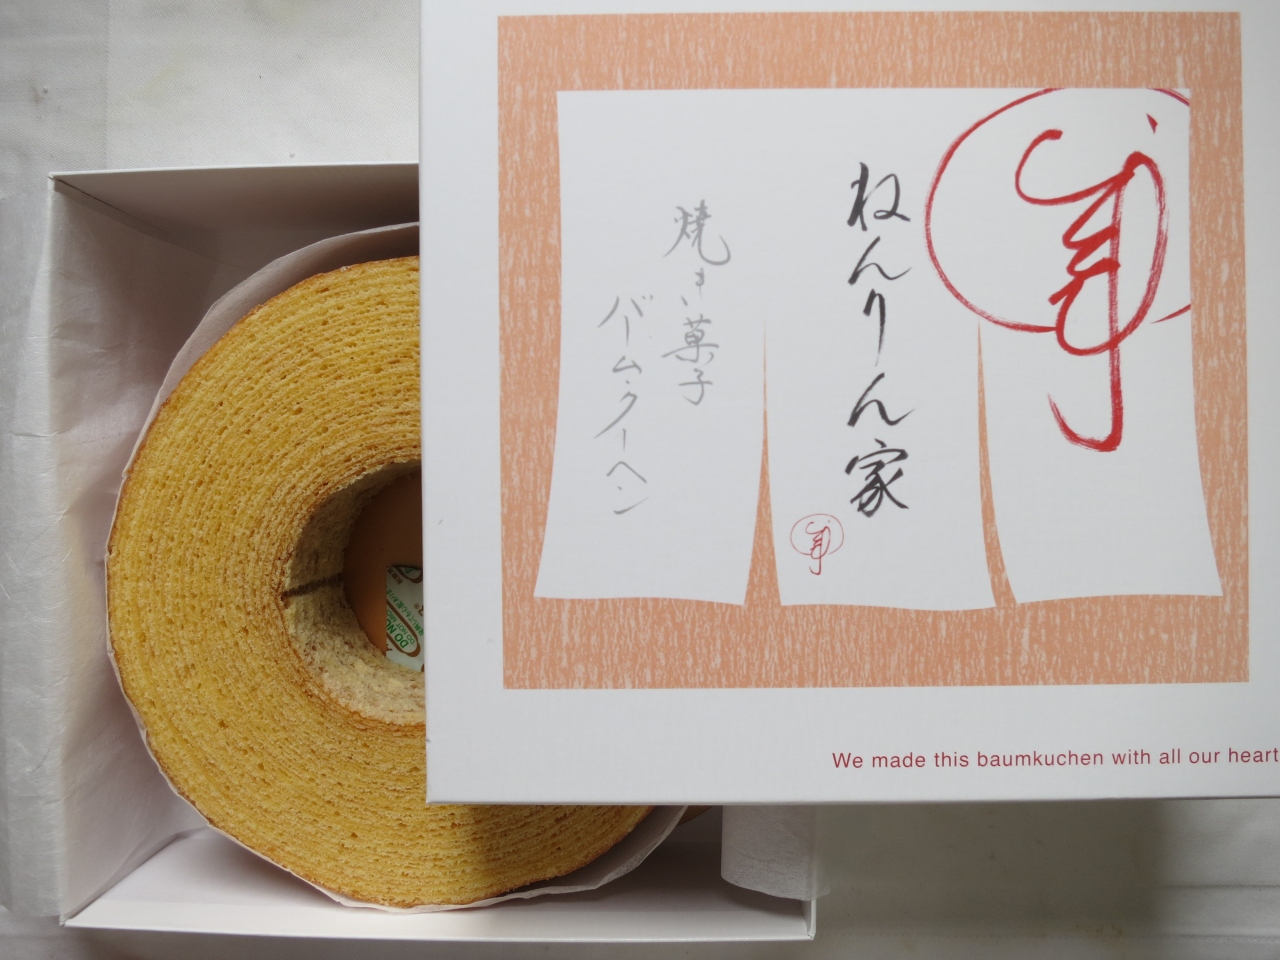 ねんりん家
焼き菓子
バームクーヘン
We made this baumkuchen with all our heart
DO NOT